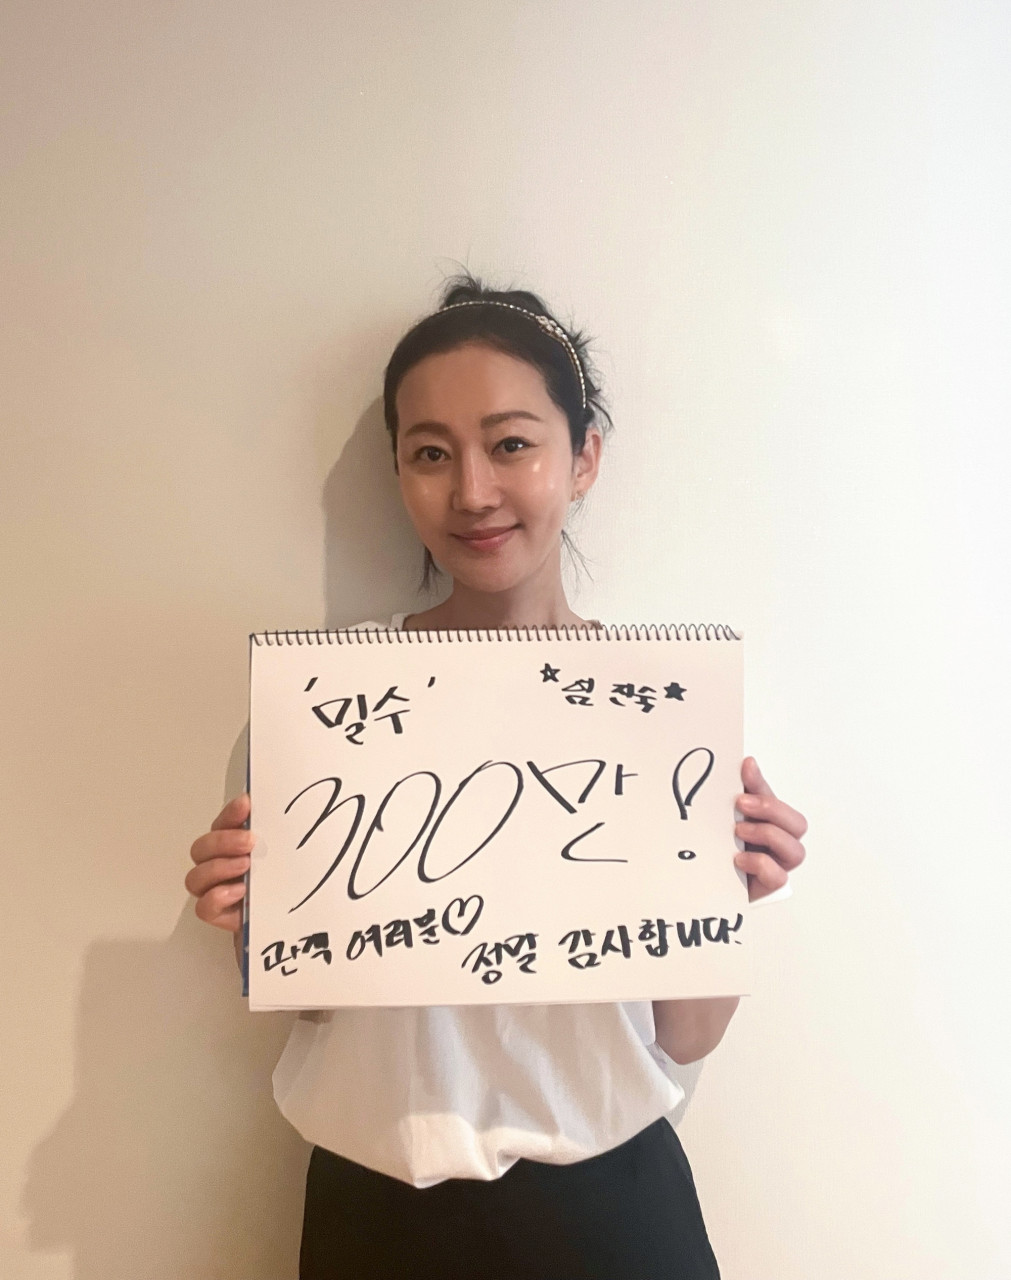 '밀수' ☆섬 진숙★
300만!
관객 여러분♡
정말 감사합니다!